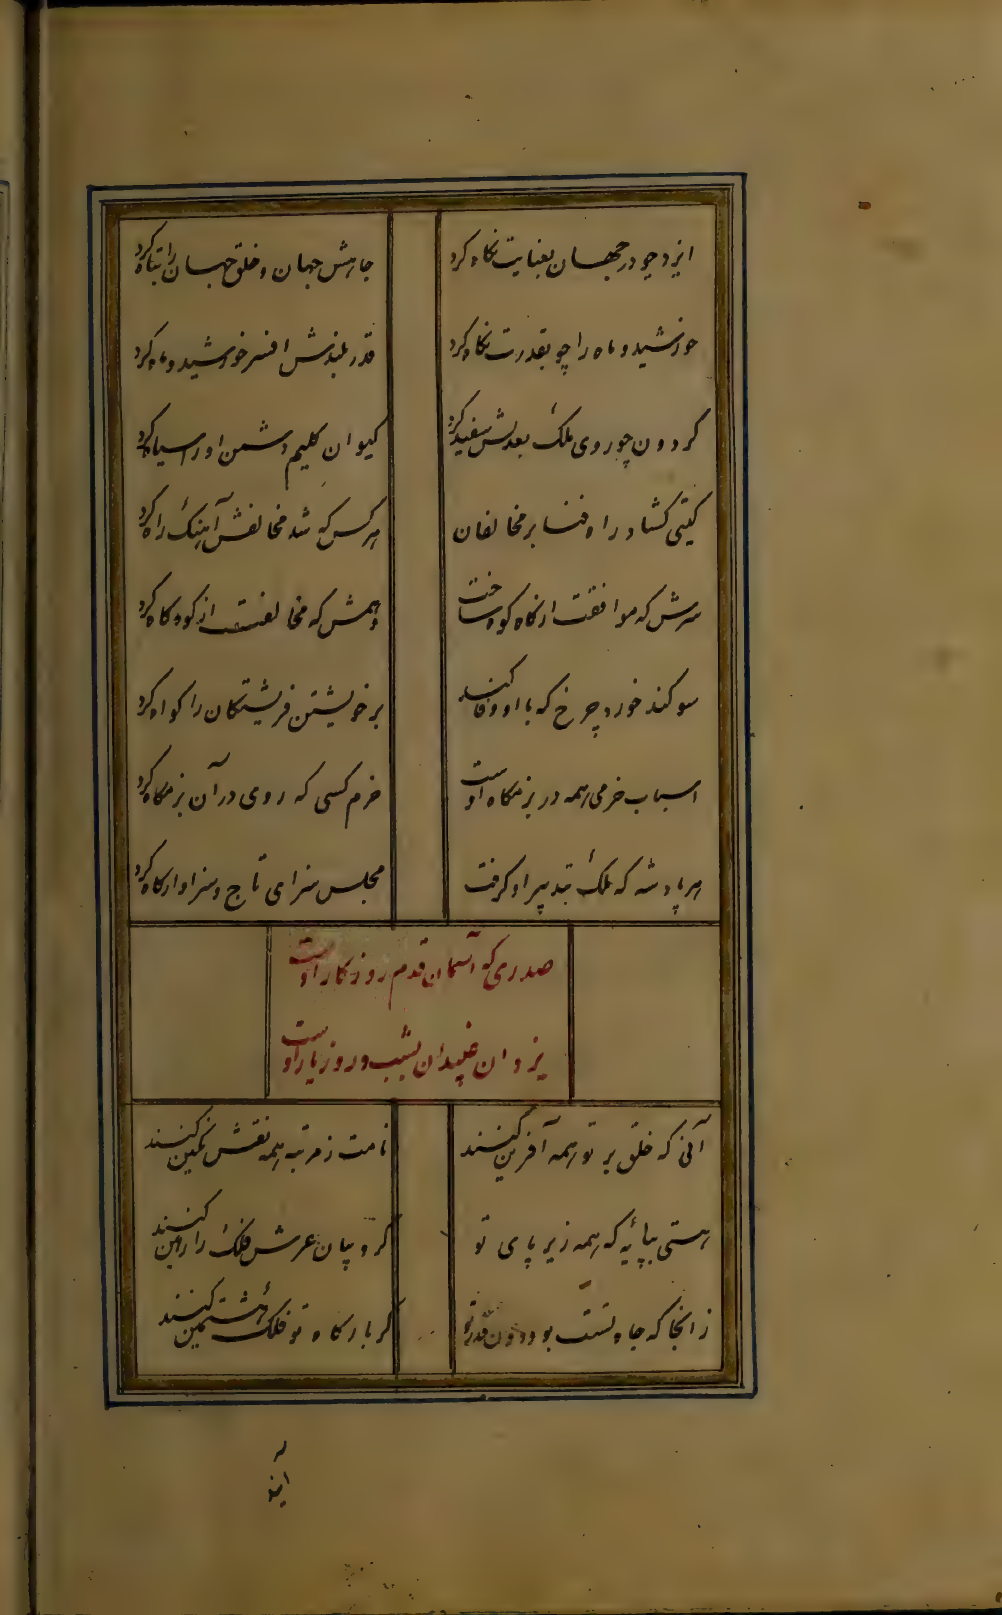 ایزد چو در جهان بعنایت نکاه کرد جاهش جهان و خلق جهان را تباه کرد
خورشید و ماه را چو بقدرت نکاه کرد قدر بلندش افسر خورشید و ماه کرد
کردون چو روی ملک بعدلش سفید کرد کیوان کلیم دشمن او را سیاه کرد
کیتی کشاد راه فنا بر مخالفان هر کس که شد مخالفش آهنک راه کرد
سرش که موافقت از کاه کوه ساخت وهمش که مخالفت از کوه کاه کرد
سوکند خورد چرخ که با او وفا کند بر خویشتن فریشتکان را کواه کرد
اسباب خرمی همه در بزمکاه اوست خرم کسی که روی در آن بزمکاه کرد
هر پادشه که ملک بتدبیر او کرفت مجلس سزای تاج و سزاوار کاه کرد
صدری که آسمان قدم روزکار اوست
یزدان غیبدان بشب و روز یار اوست
آنی که خلق بر تو همه آفرین کنند نامت ز مرتبه همه نقش نکین کنند
هستی بپایه که همه زیر پای تو کروبیان عرش فلک را زمین کنند
زانجا که جاه تست بود دون قدر تو کر بارکاه تو فلک هشتمین کنند